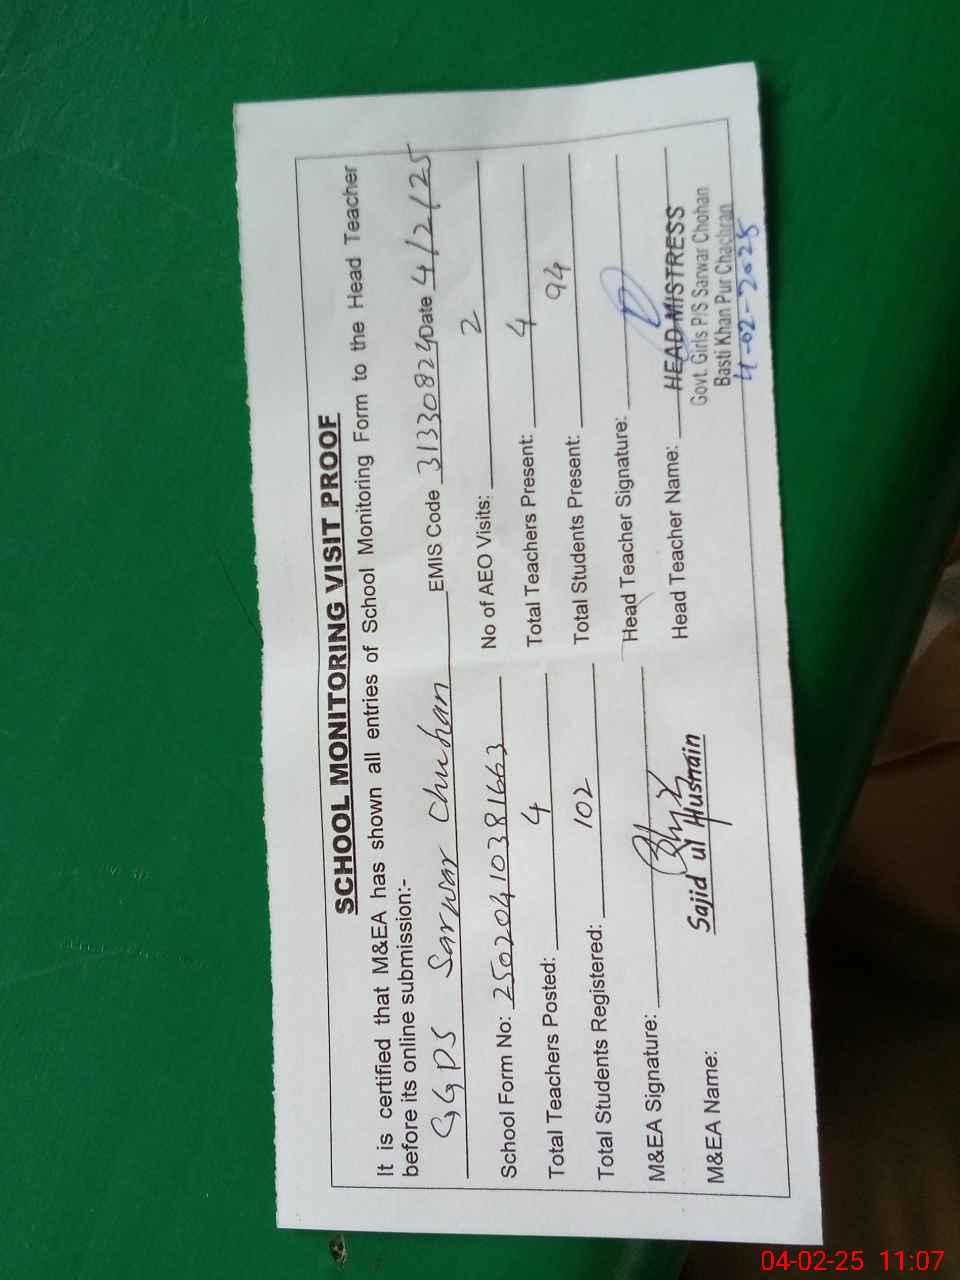 SCHOOL MONITORING VISIT PROOF
It is certified that M&EA has shown all entries of School Monitoring Form to the Head Teacher
before its online submission:-
GGPS Sarwar Chuhan EMIS Code 31330824 Date 4/2/25
School Form No: 25020410381663 No of AEO Visits: 2
Total Teachers Posted: 4 Total Teachers Present: 4
Total Students Registered: 102 Total Students Present: 94
M&EA Signature: Head Teacher Signature:
M&EA Name: Sajid ul Husnain Head Teacher Name: HEAD MISTRESS
Govt. Girls P/S Sarwar Chohan
Basti Khan Pur Chachran
4-02-2025
04-02-25 11:07